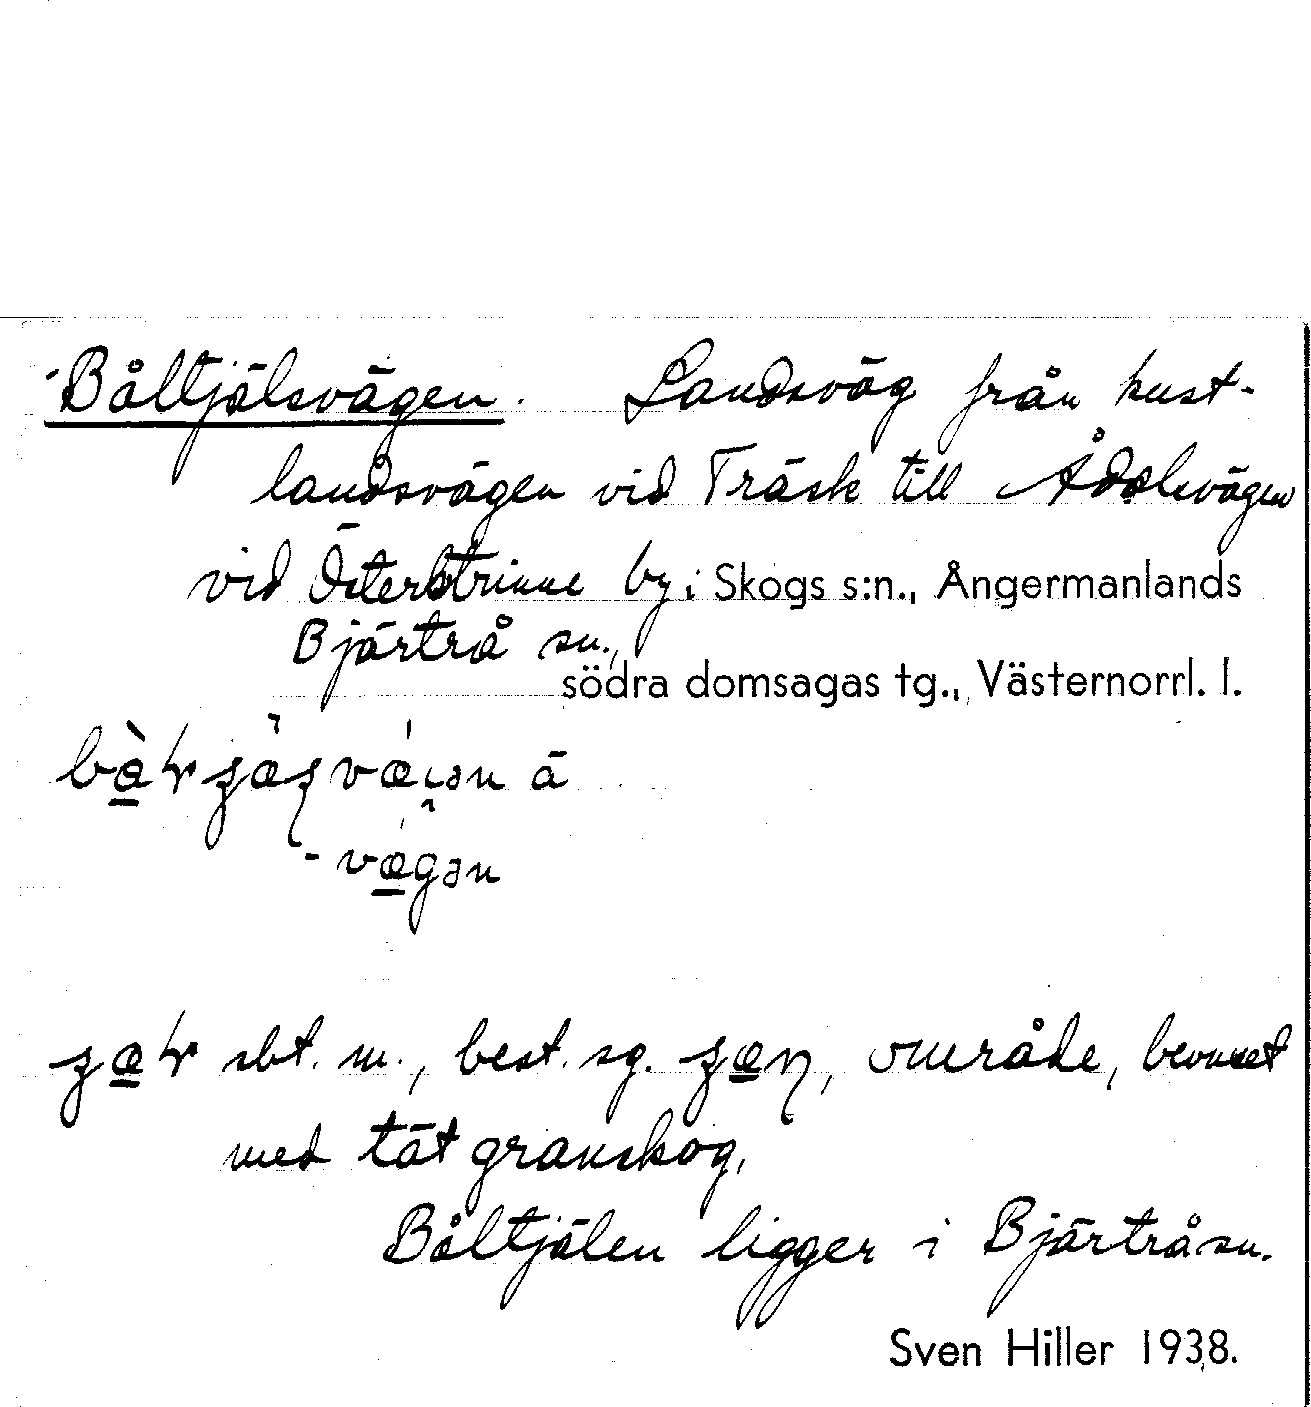 Båltjälsvägen. Landsväg från kust-
landsvägen vid Träsk till Ådalsvägen
vid Österstrinne by i Skogs s:n., Ångermanlands
Bjärtrå sn.,
södra domsagas tg., Västernorrl. l.
å
-vægən
sbt. m., best. sg. område, bevuxet
med tät granskog.
Båltjälen ligger i Bjärtrå sn.
Sven Hiller 1938.